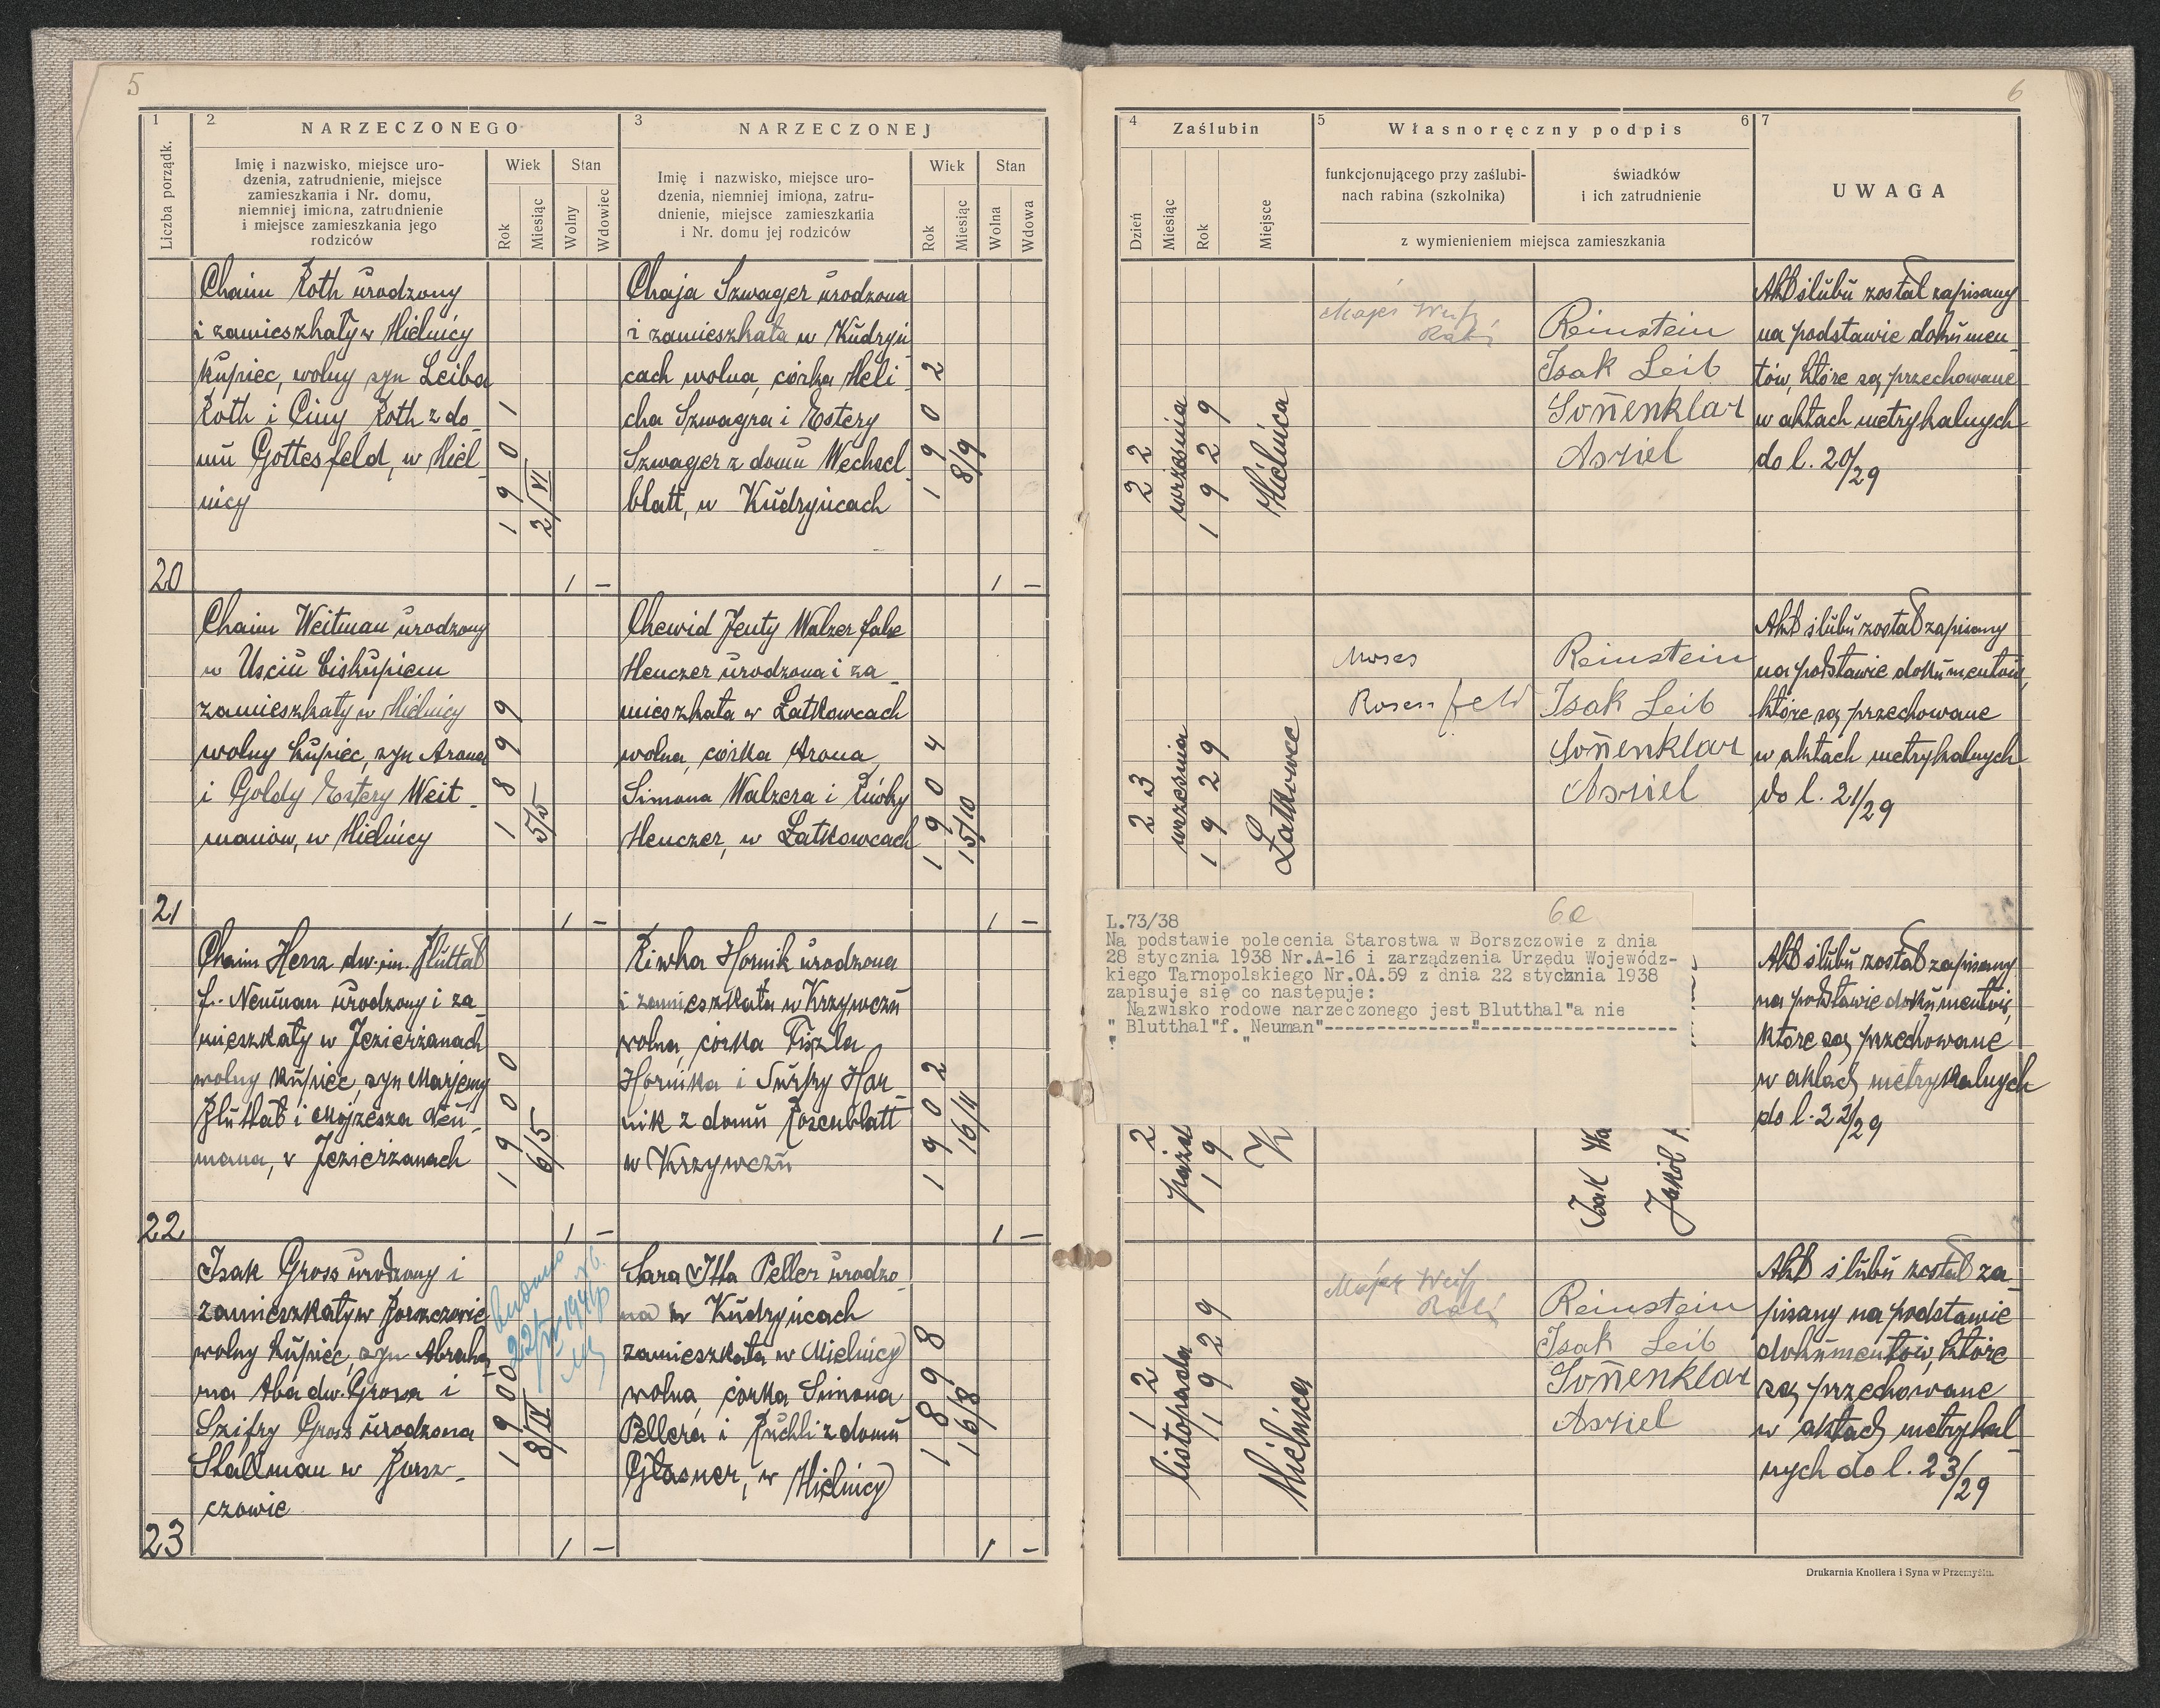 5
1
2
NARZECZONEGO
3
NARZECZONEJ
Liczba porządk.
Imię i nazwisko, miejsce uro-
dzenia, zatrudnienie, miejsce
zamieszkania i Nr. domu,
niemniej imiona, zatrudnienie
i miejsce zamieszkania jego
rodziców
Wiek
Stan
Rok
Miesiąc
Wolny
Wdowiec
Imię i nazwisko, miejsce uro-
dzenia, niemniej imiona, zatru-
dnienie, miejsce zamieszkania
i Nr. domu jej rodziców
Wiek
Stan
Rok
Miesiąc
Wolna
Wdowa
Chaim Roth urodzony
i zamieszkały w Mielnicy
kupiec, wolny syn Leiba
Roth i Ciny Roth z do-
mu Gottesfeld, w Miel-
nicy
1901
2/VI
Chaja Szwager urodzona
i zamieszkała w Kudryń
cach wolna, córka Meli-
cha Szwagra i Estery
Szwager z domu Wechsel
blatt, w Kudryńcach
1902
8/9
20
1 —
1 —
Chaim Weitman urodzony
w Uściu biskupiem
zamieszkały w Mielnicy
wolny kupiec, syn Arona
i Goldy Estery Weit-
manów, w Mielnicy
1899
5/5
Chewid Jenty Walzer false
Henczer urodzona i za-
mieszkała w Latkowcach
wolna, córka Arona
Simona Walzera i Rywky
Henczer, w Latkowcach
1904
15/10
21
1 —
1 —
Chaim Hersz dw. im. Bluttal
f. Neuman urodzony i za-
mieszkały w Jezierzanach
wolny kupiec, syn Marjemy
Bluttal i Mojżesza Neu-
mana, w Jezierzanach
1900
6/5
Riwka Hornik urodzona
i zamieszkała w Krzywczu
wolna córka Fiszla
Hornika i Surky Hor-
nik z domu Rosenblatt
w Krzywczu
1902
16/4
22
1 —
1 —
Isak Gross urodzony i
zamieszkały w Borszczowie
wolny kupiec, syn Abraha-
ma Aba dw. Grossa i
Szifry Gross urodzona
Stallman w Borsz-
czowie
1900
8/IV
Sara Itta Peller urodzo-
na w Kudryńcach
zamieszkała w Mielnicy
wolna, córka Simona
Pellera i Ruchli z domu
Glasner, w Mielnicy
1898
16/8
23
1 —
1 —
6
4
Zaślubin
5
Własnoręczny podpis
6
7
Dzień
Miesiąc
Rok
Miejsce
funkcjonującego przy zaślubi-
nach rabina (szkolnika)
świadków
i ich zatrudnienie
z wymienieniem miejsca zamieszkania
UWAGA
22
września
1929
Mielnica
Reinstein
Isak Leib
Sonenklar
Asriel
Akt ślubu został zapisany
na podstawie dokumen-
tów, które są przechowane
w aktach metrykalnych
do l. 20/29
23
września
1929
Latkowce
Moses
Rosenfeld
Reinstein
Isak Leib
Sonenklar
Asriel
Akt ślubu został zapisany
na podstawie dokumentów,
które są przechowane
w aktach metrykalnych
do l. 21/29
6a
L.73/38
Na podstawie polecenia Starostwa w Borszczowie z dnia
28 stycznia 1938 Nr.A-16 i zarządzenia Urzędu Wojewódz-
kiego Tarnopolskiego Nr.OA.59 z dnia 22 stycznia 1938
zapisuje się co następuje:
Nazwisko rodowe narzeczonego jest Blutthal"a nie
" Blutthal"f. Neuman"----------------"---------------------
" "
2
paźd
19
K
Isak Wa
Jakób
Akt ślubu został zapisany
na podstawie dokumentów,
które są przechowane
w aktach metrykalnych
do l. 22/29
12
listopada
1929
Mielnica
Reinstein
Isak Leib
Sonenklar
Asriel
Akt ślubu został za-
pisany na podstawie
dokumentów, które
są przechowane
w aktach metrykal-
nych do l. 23/29
Drukarnia Knollera i Syna w Przemyślu.